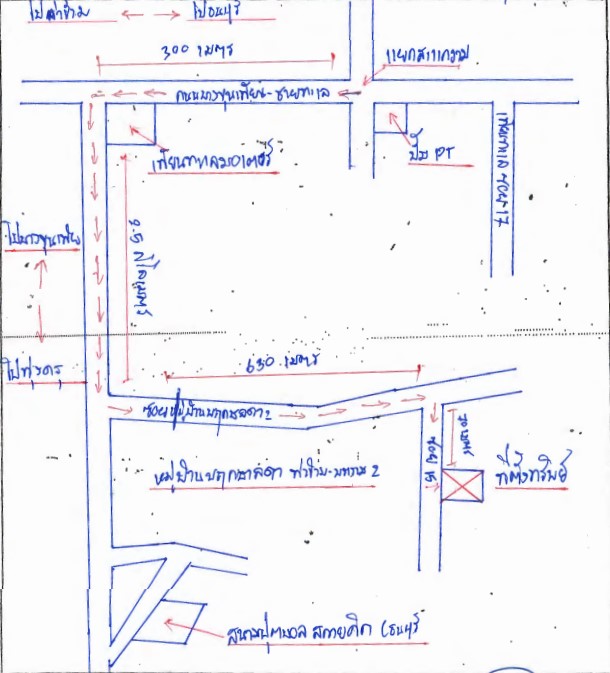 ไปท่าข้าม ไปธนบุรี
300 เมตร
แยกสแกงาม
ถนนบางขุนเทียน-ชายทะเล
เทียนทะเลมอเตอร์
ปั๊ม PT
เทียนทะเล ซอย 17
ไปบางขุนเทียน
2.5 กิโลเมตร
ไปทุ่งครุ
630 เมตร
ซอยหมู่บ้านพฤกษลดา 2
ซอย 15
70 เมตร
หมู่บ้านพฤกษาลดา ท่าข้าม-พระราม 2
ที่ตั้งทรัพย์
สนามฟุตบอล สกายคิก (ธนบุรี